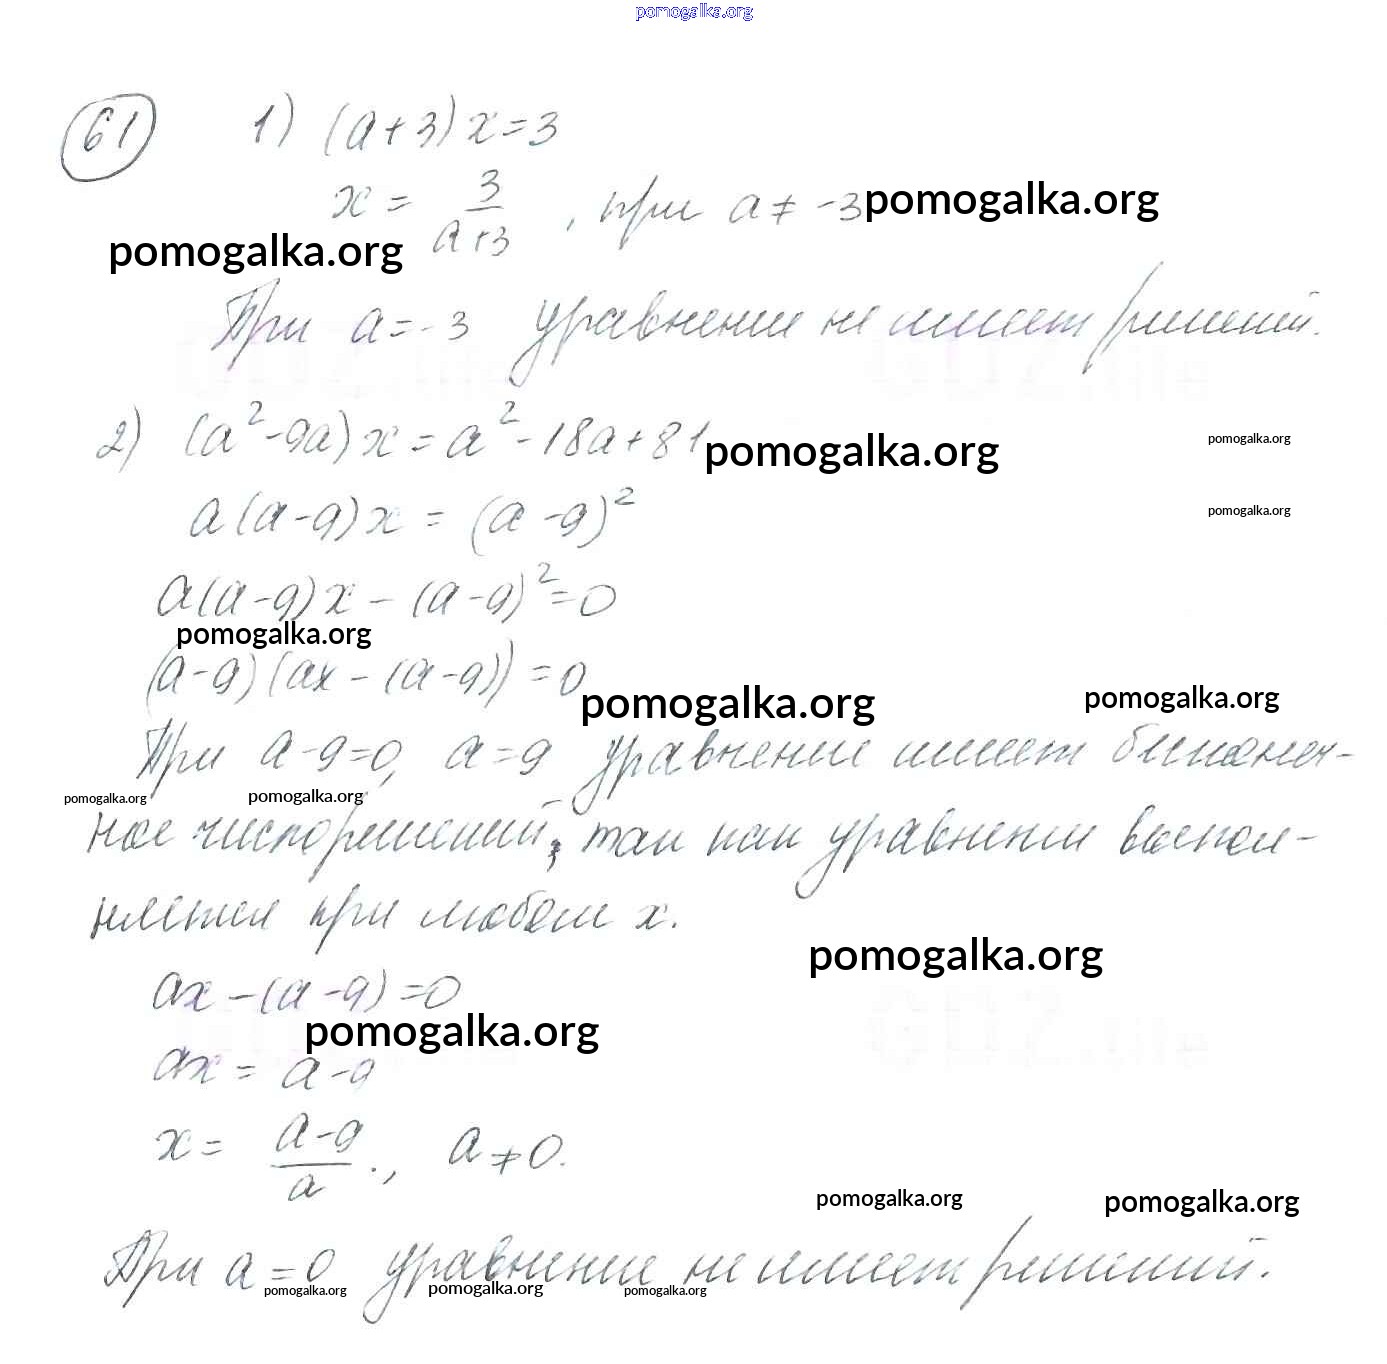 pomogalka.org
61 1) (a+3)x=3
x = 3/(a+3), при a ≠ -3 pomogalka.org
pomogalka.org
При a = -3 уравнение не имеет решений.
2) (a²-9a)x = a²-18a+81 pomogalka.org pomogalka.org
a(a-9)x = (a-9)² pomogalka.org
a(a-9)x - (a-9)² = 0
pomogalka.org
(a-9)(ax - (a-9)) = 0
pomogalka.org pomogalka.org
При a-9=0, a=9 уравнение имеет бесконеч-
pomogalka.org pomogalka.org
ное число решений, так как уравнение выпол-
няется при любом x.
pomogalka.org
ax - (a-9) = 0
pomogalka.org
ax = a-9
x = (a-9)/a., a ≠ 0.
pomogalka.org pomogalka.org
При a = 0 уравнение не имеет решений.
pomogalka.org pomogalka.org pomogalka.org